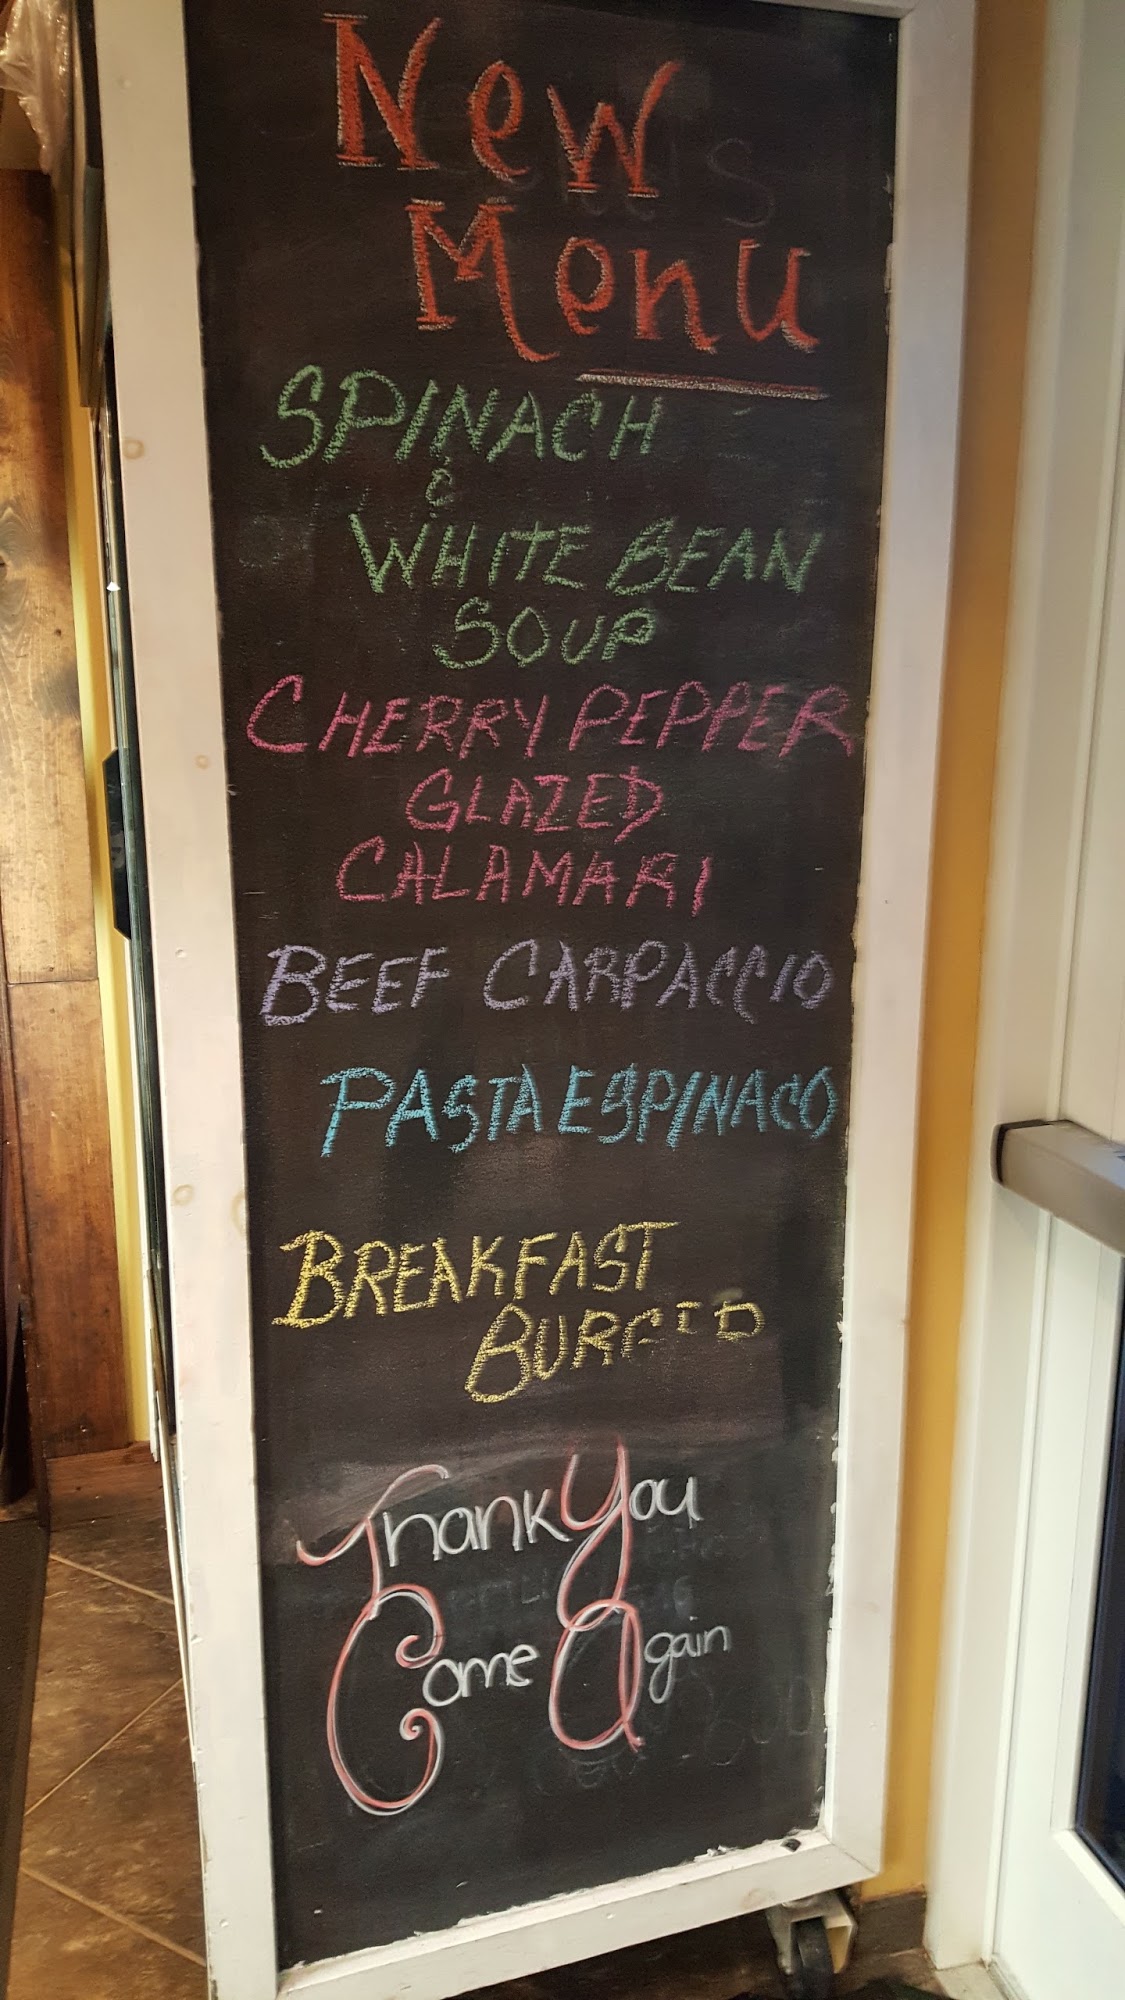 New
Menu
SPINACH
&
WHITE BEAN
SOUP
CHERRY PEPPER
GLAZED
CALAMARI
BEEF CARPACCIO
PASTA ESPINACO
BREAKFAST
Thank You
Come Again